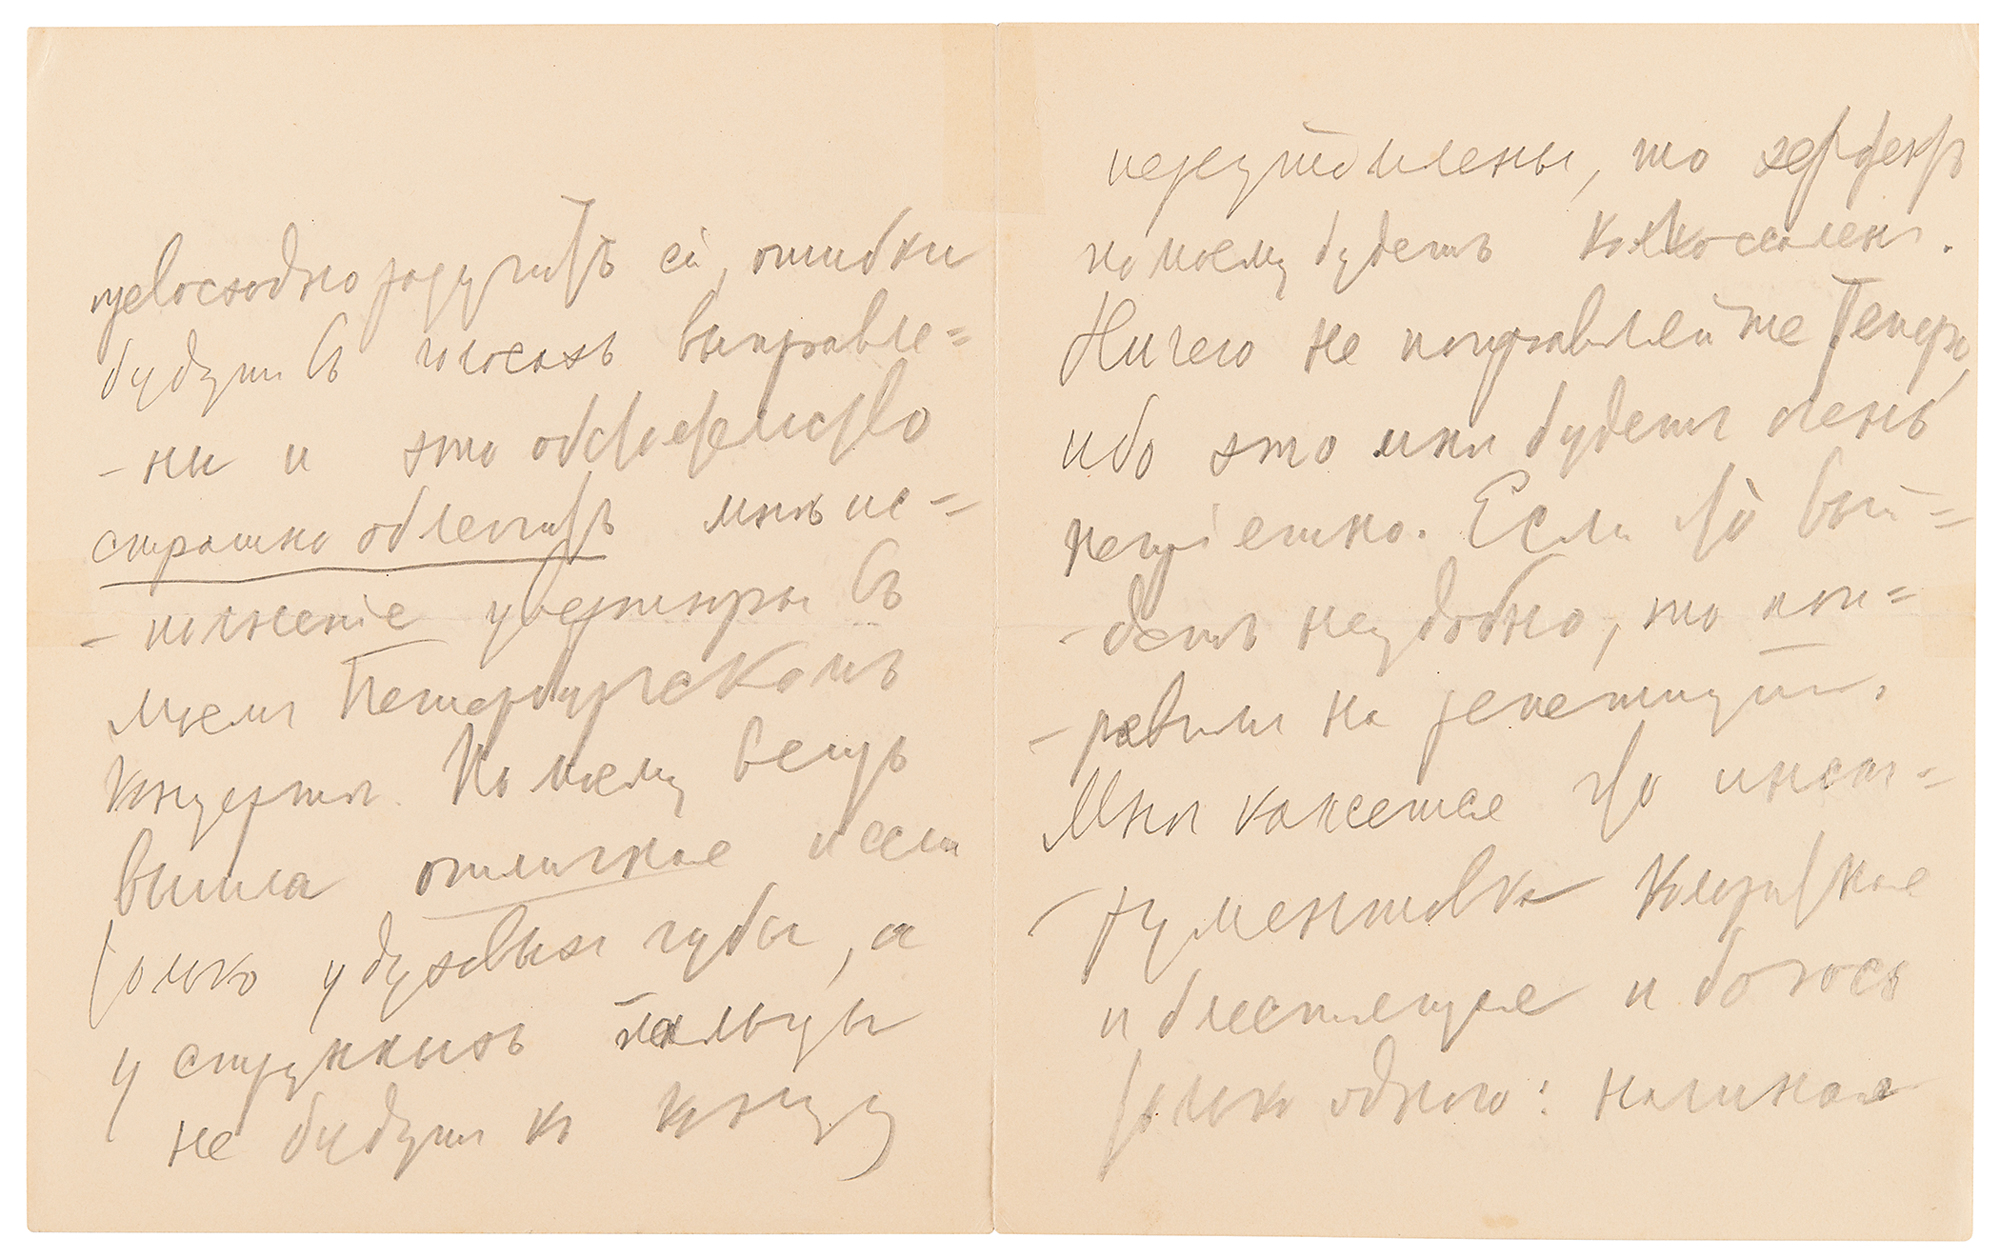 превосходно разучитъ ей, ошибки
будутъ въ голосахъ выправле=
-ны и это обстоятельство
страшно облегчитъ мнѣ ис=
-полненіе увертюры въ
моемъ Петербургскомъ
концертѣ. По моему вещь
вышла отличная и если
только у духовыхъ губы, а
у струнныхъ пальцы
не будутъ къ концу
переутомлены, то эффектъ
по моему будетъ колоссаленъ.
Ничего не поправляйте теперь,
ибо это мнѣ будетъ очень
непріятно. Если что вый=
-детъ неудобно, то поп=
-равимъ на репетиціи.
Мнѣ кажется что инст=
-рументовка колоритная
и блестящая и боюсь
только одного: начиная